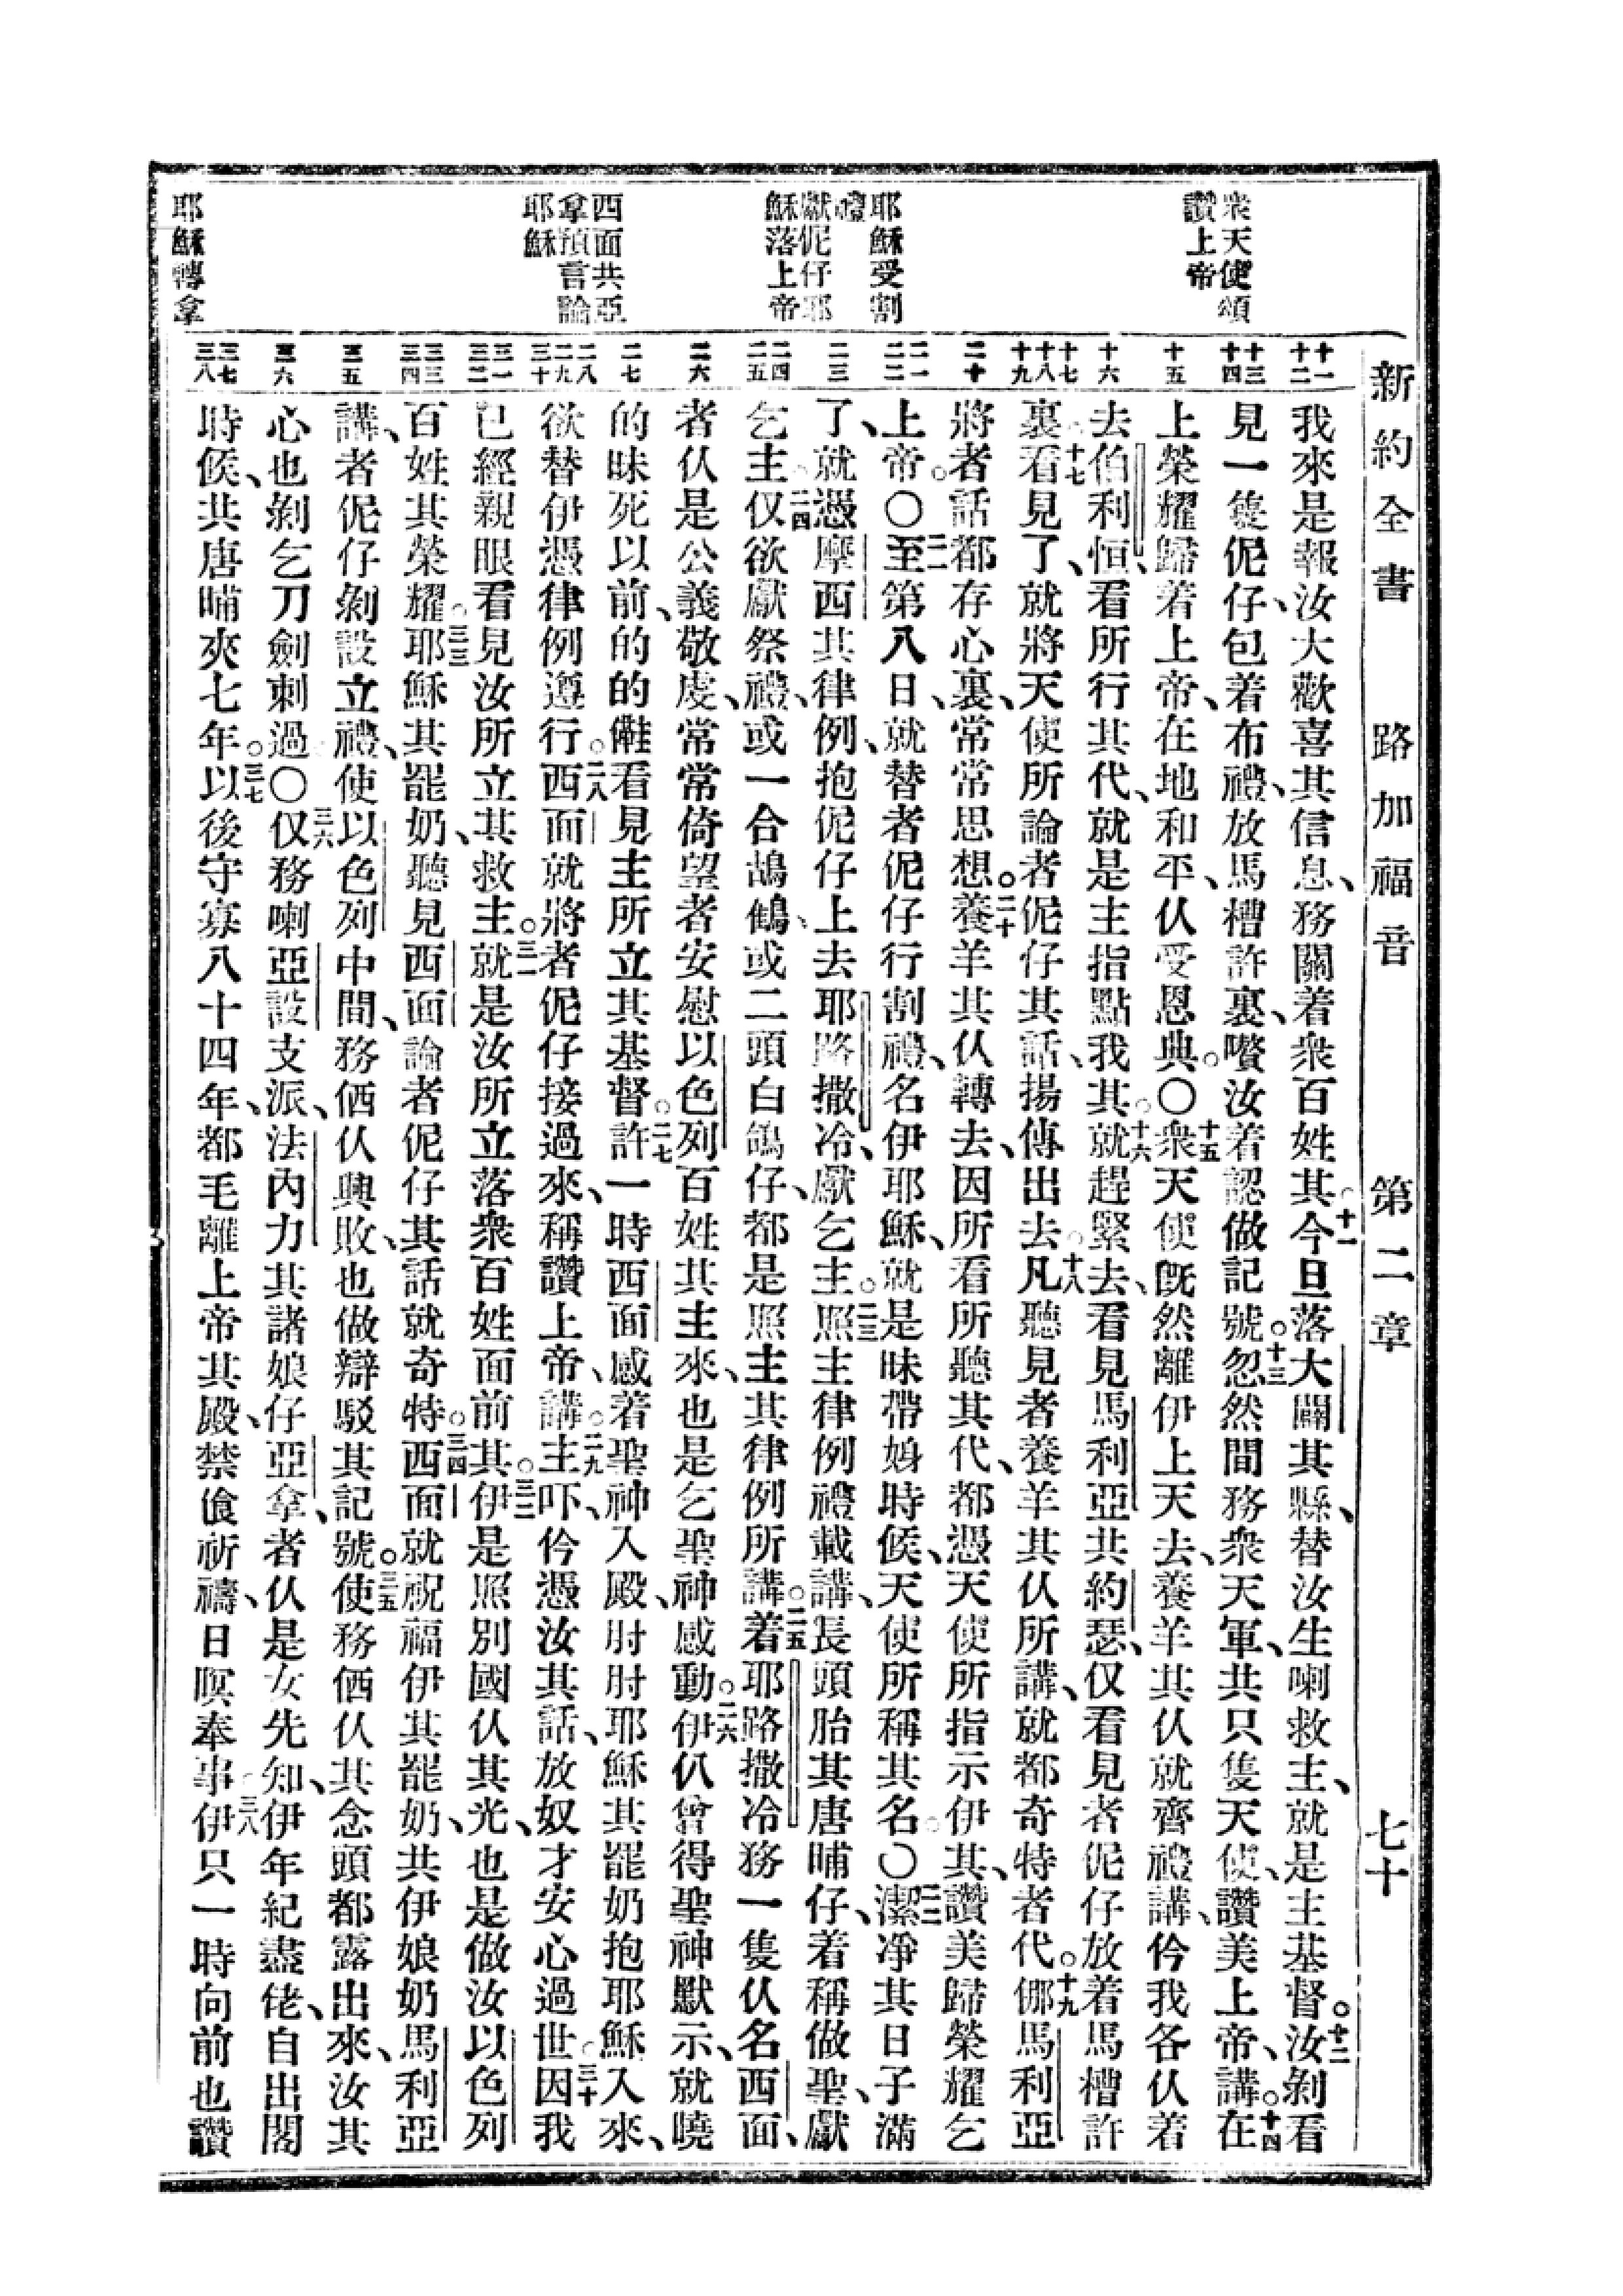 新約全書　路加福音　第二章　七十
衆天使頌
讚上帝
耶穌受割
禮
獻伲仔耶
穌落上帝
西面共亞
拿預言論
耶穌
耶穌轉拿
十一
十二
十三
十四
十五
十六
十七
十八
十九
二十
二一
二二
二三
二四
二五
二六
二七
二八
二九
三十
三一
三二
三三
三四
三五
三六
三七
三八
我來是報汝大歡喜其信息、務關着衆百姓其。十一今旦落大闢其縣、替汝生喇救主、就是主基督。十二汝剝看
見一隻伲仔、包着布禮、放馬槽許裏、嘐汝着認做記號。十三忽然間務衆天軍、共只隻天使、讚美上帝、講。十四在
上榮耀歸着上帝、在地和平、仈受恩典。〇十五衆天使旣然離伊上天去、養羊其仈就齊禮講、仱我各仈着
去伯利恒、看所行其代、就是主指點我其。十六就趕緊去、看見馬利亞共約瑟、仅看見者伲仔放着馬槽許
裏。十七看見了、就將天使所論者伲仔其話、揚傳出去。十八凡聽見者養羊其仈所講、就都奇特者代。十九㑚馬利亞
將者話都存心裏、常常思想。二十養羊其仈轉去、因所看所聽其代、都憑天使所指示伊其、讚美歸榮耀乞
上帝。〇二一至第八日、就替者伲仔行割禮、名伊耶穌、就是昧帶㛮時候、天使所稱其名。〇二二潔凈其日子滿
了、就憑摩西其律例、抱伲仔上去耶路撒冷、獻乞主。二三照主律例禮載講、長頭胎其唐晡仔、着稱做聖、獻
乞主。二四仅欲獻祭禮、或一合鴣鶴、或二頭白鴿仔、都是照主其律例所講。二五着耶路撒冷務一隻仈名西面、
者仈是公義敬虔、常常倚望者安慰以色列百姓其主來、也是乞聖神感動。二六伊仈曾得聖神默示、就曉
的昧死以前、的的㒁看見主所立其基督。二七許一時西面感着聖神入殿、肘肘耶穌其罷奶抱耶穌入來、
欲替伊憑律例遵行。二八西面就將者伲仔接過來、稱讚上帝、講。二九主吓、仱憑汝其話、放奴才安心過世。三十因我
已經親眼看見汝所立其救主。三一就是汝所立落衆百姓面前其。三二伊是照別國仈其光、也是做汝以色列
百姓其榮耀。三三耶穌其罷奶、聽見西面論者伲仔其話就奇特。三四西面就祝福伊其罷奶、共伊娘奶馬利亞
講、者伲仔剝設立禮、使以色列中間、務価仈興敗、也做辯駁其記號。三五使務価仈其念頭都露出來、汝其
心也剝乞刀劍刺過。〇三六仅務喇亞設支派、法內力其諸娘仔亞拿、者仈是女先知、伊年紀盡㑽、自出閣
時候、共唐晡夾七年。三七以後守寡八十四年、都毛離上帝其殿、禁飡祈禱、日暝奉事。三八伊只一時向前也讚